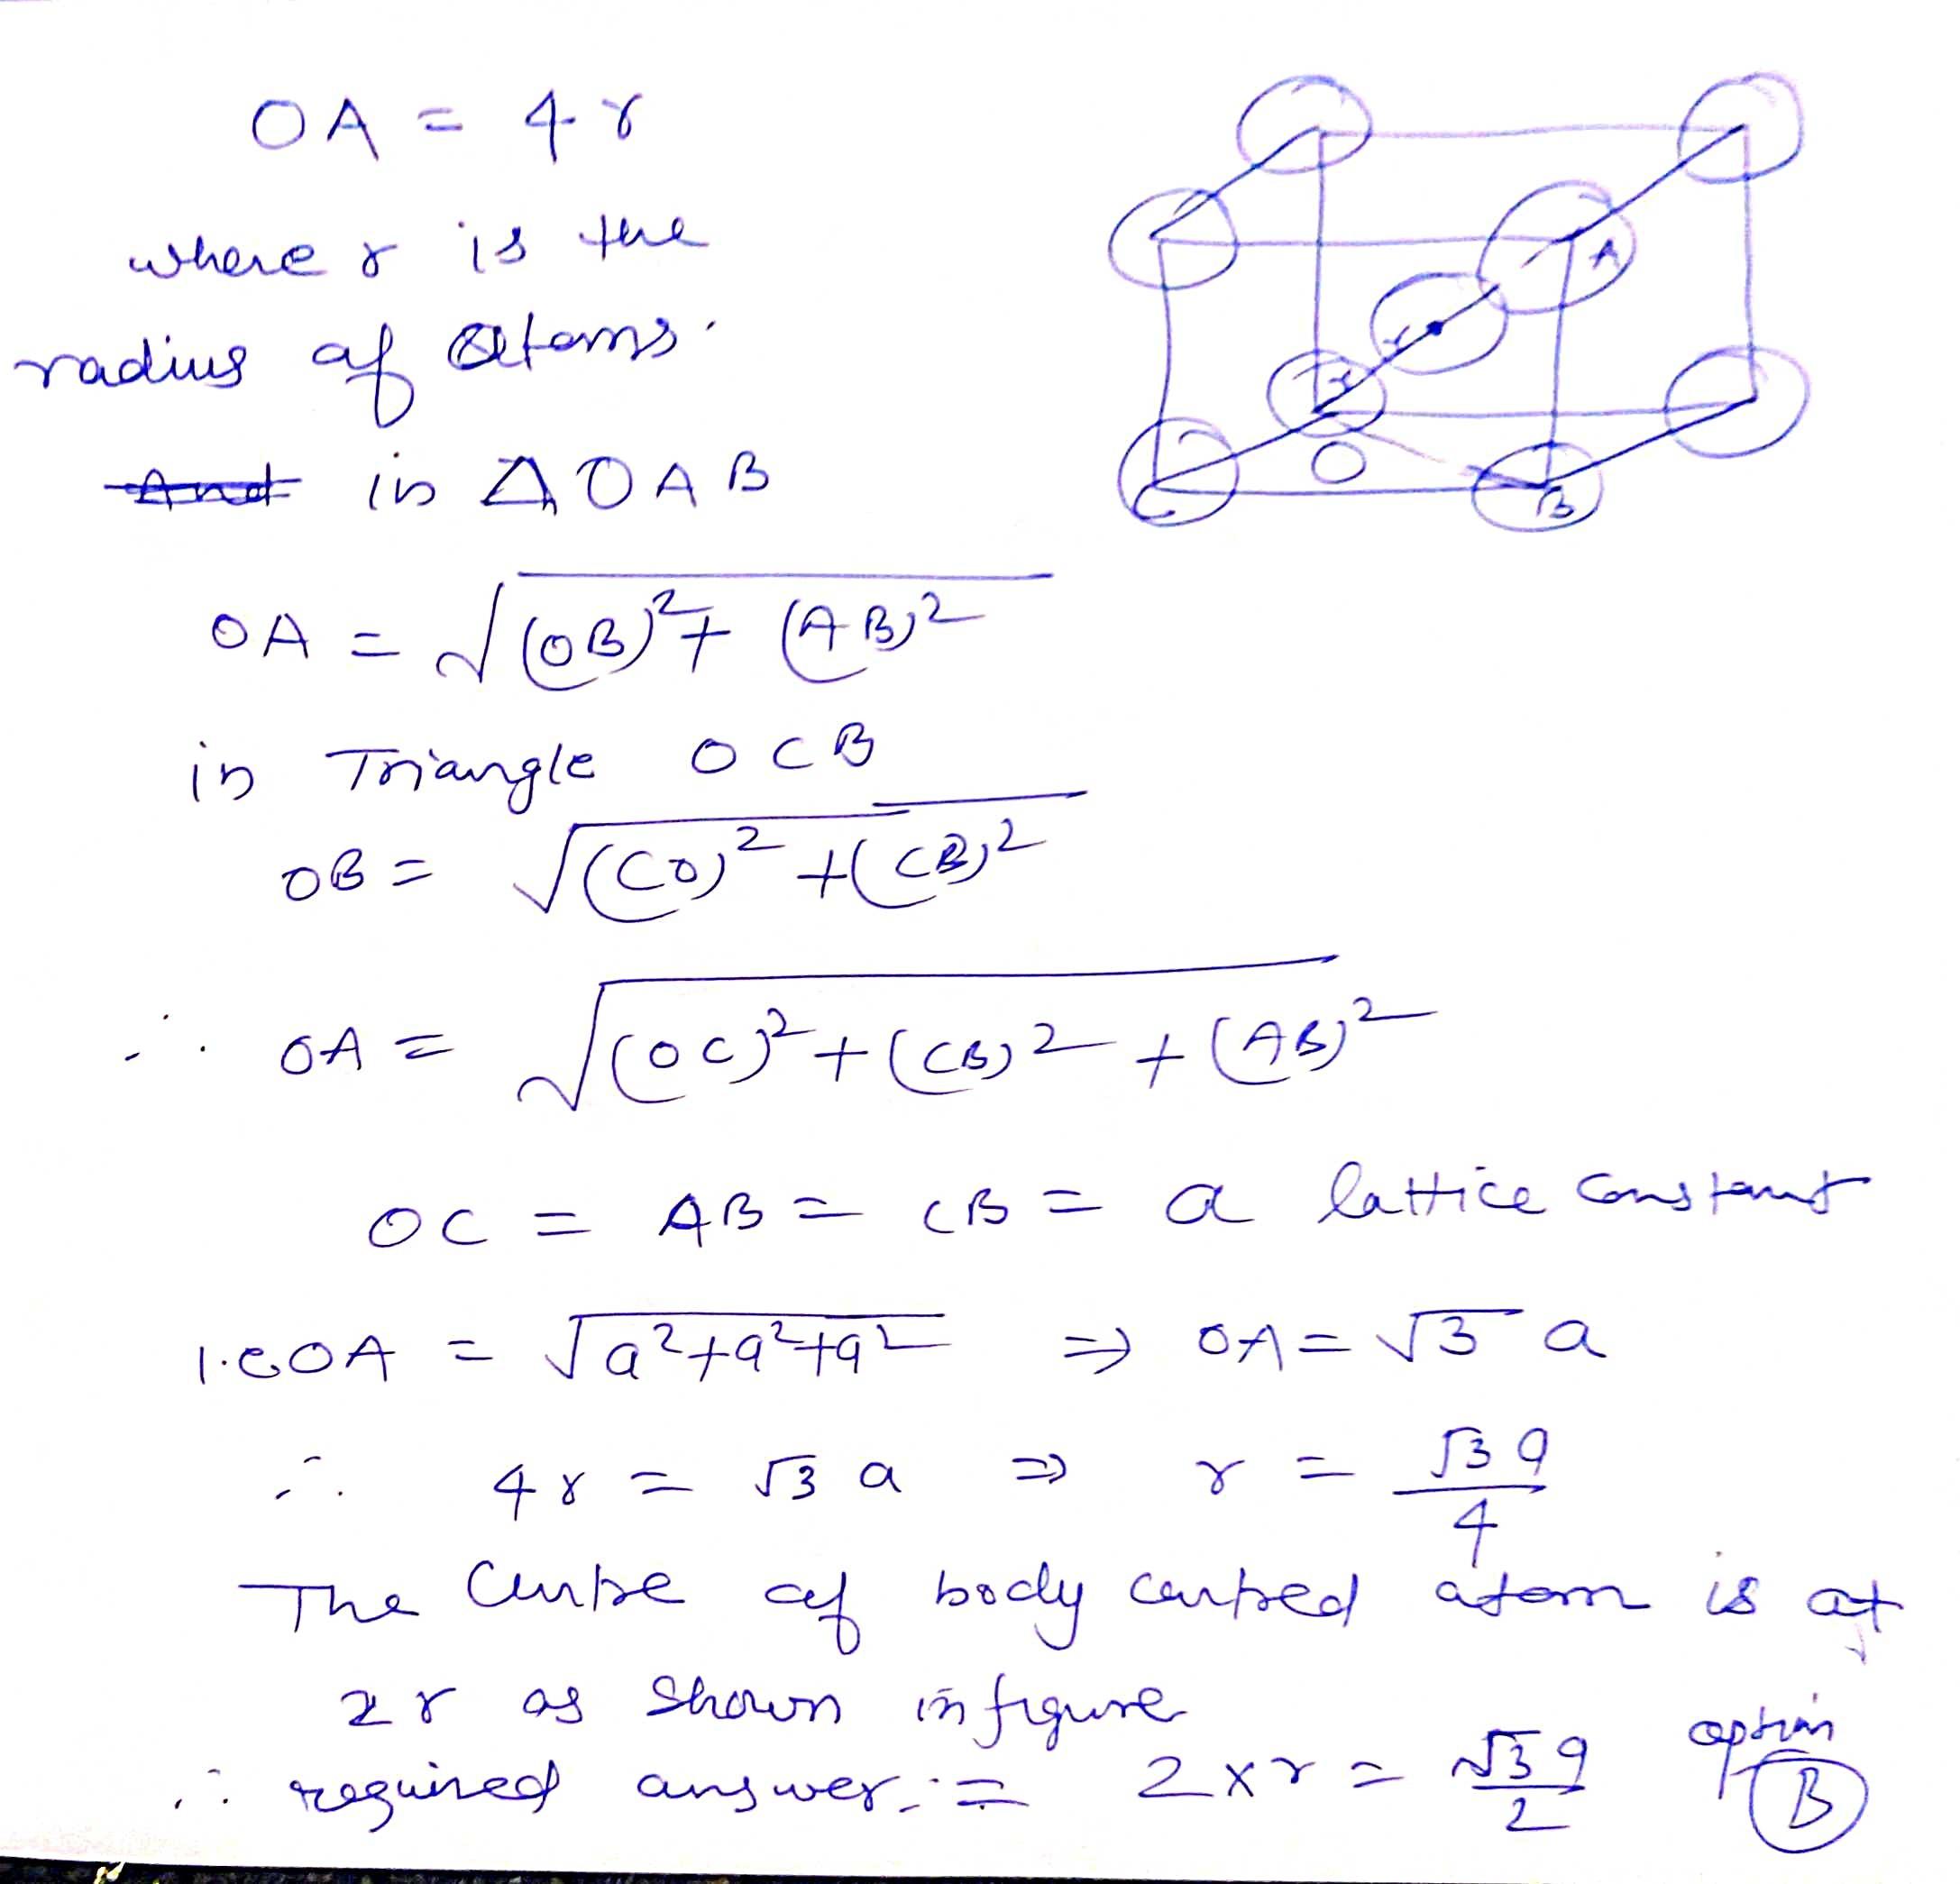 OA = 4r
where r is the
radius of atoms.
And in △OAB
OA = √(OB)² + (AB)²
in Triangle OCB
OB = √(CO)² + (CB)²
∴ OA = √(OC)² + (CB)² + (AB)²
OC = AB = CB = a lattice constant
i.e OA = √a²+a²+a² ⇒ OA = √3 a
∴ 4r = √3 a ⇒ r = √3 a / 4
The centre of body centred atom is at
2r as shown in figure
∴ required answer := 2×r = √3 a / 2 option B
A
O
B
C